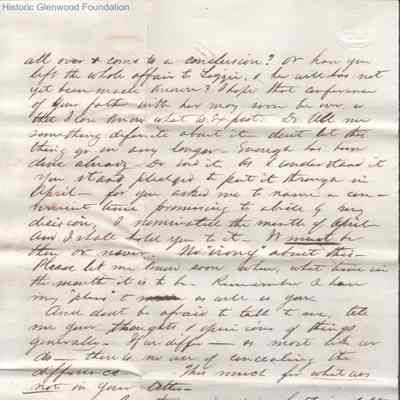 Historic Glenwood Foundation
all over & come to a conclusion? Or have you
left the whole affair to Lizzie, & her will has not
yet been made known? I hope that conference
of your father with her may soon be over, so
that I can know what to expect. Do tell me
something definite about it - dont let this
thing go on any longer. Enough has been
done already to end it. As I understand it
you stand pledged to put it through in
April - for you asked me to name a con-
venient time promising to abide by my
decision, I nominated the month of April
and I shall hold you to it. It must be
then or never. No "irony" about this -
Please let me know soon when, what time in
the month it is to be. Remember I have
my "plans" to as well as you.
And dont be afraid to talk to me, tell
me your thoughts & opinions of things
generally. If we differ - as most like we
do - there is no use of concealing the
difference. This much for what was
not in your letter.